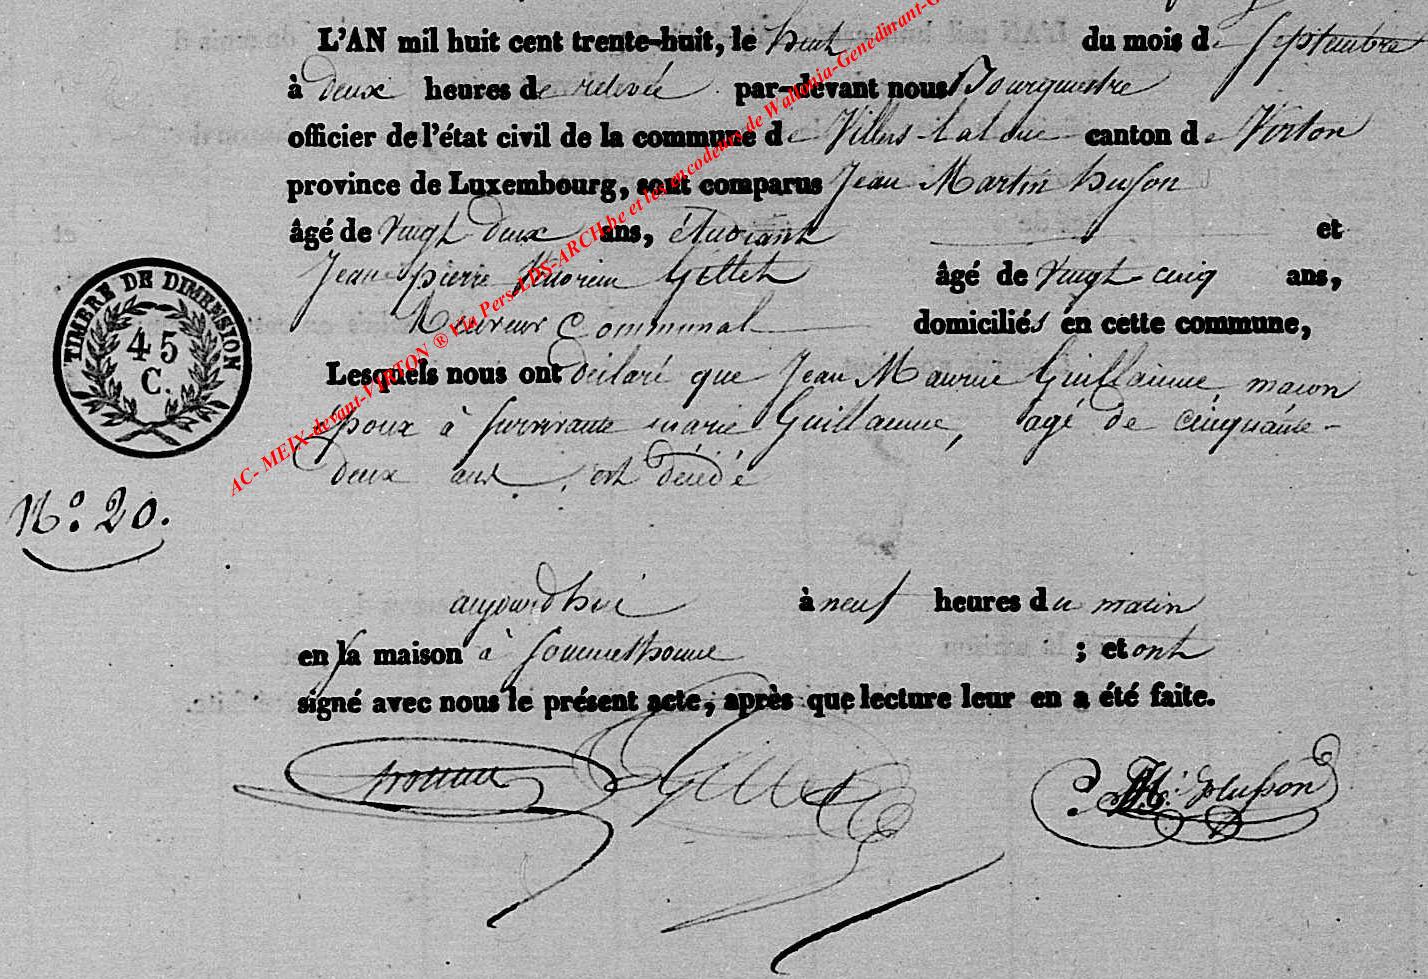 L'AN mil huit cent trente-huit, le huit du mois de Septembre
à deux heures de relevée par-devant nous Bourguestre
officier de l'état civil de la commune de Villers-la-loue canton de Virton
province de Luxembourg, sont comparus Jean Martin husson
âgé de vingt deux ans, étudiant et
Jean pierre Gillet âgé de vingt cinq ans,
Receveur Communal domiciliés en cette commune,
Lesquels nous ont déclaré que Jean Maurice Guillaume macon
époux à survivante marie Guillaume, agé de cinquante-
deux ans, est décédé
N° 20.
aujourdhui à neuf heures du matin
en sa maison à Sommethonne ; et ont
signé avec nous le présent acte, après que lecture leur en a été faite.
Gillet
husson
TIMBRE DE DIMENSION
45
C.
AC- MEIX-devant-VIRTON ® Via Pers-LDS-ARCH.be et les encodeurs de Wallonia-Genedinant-G